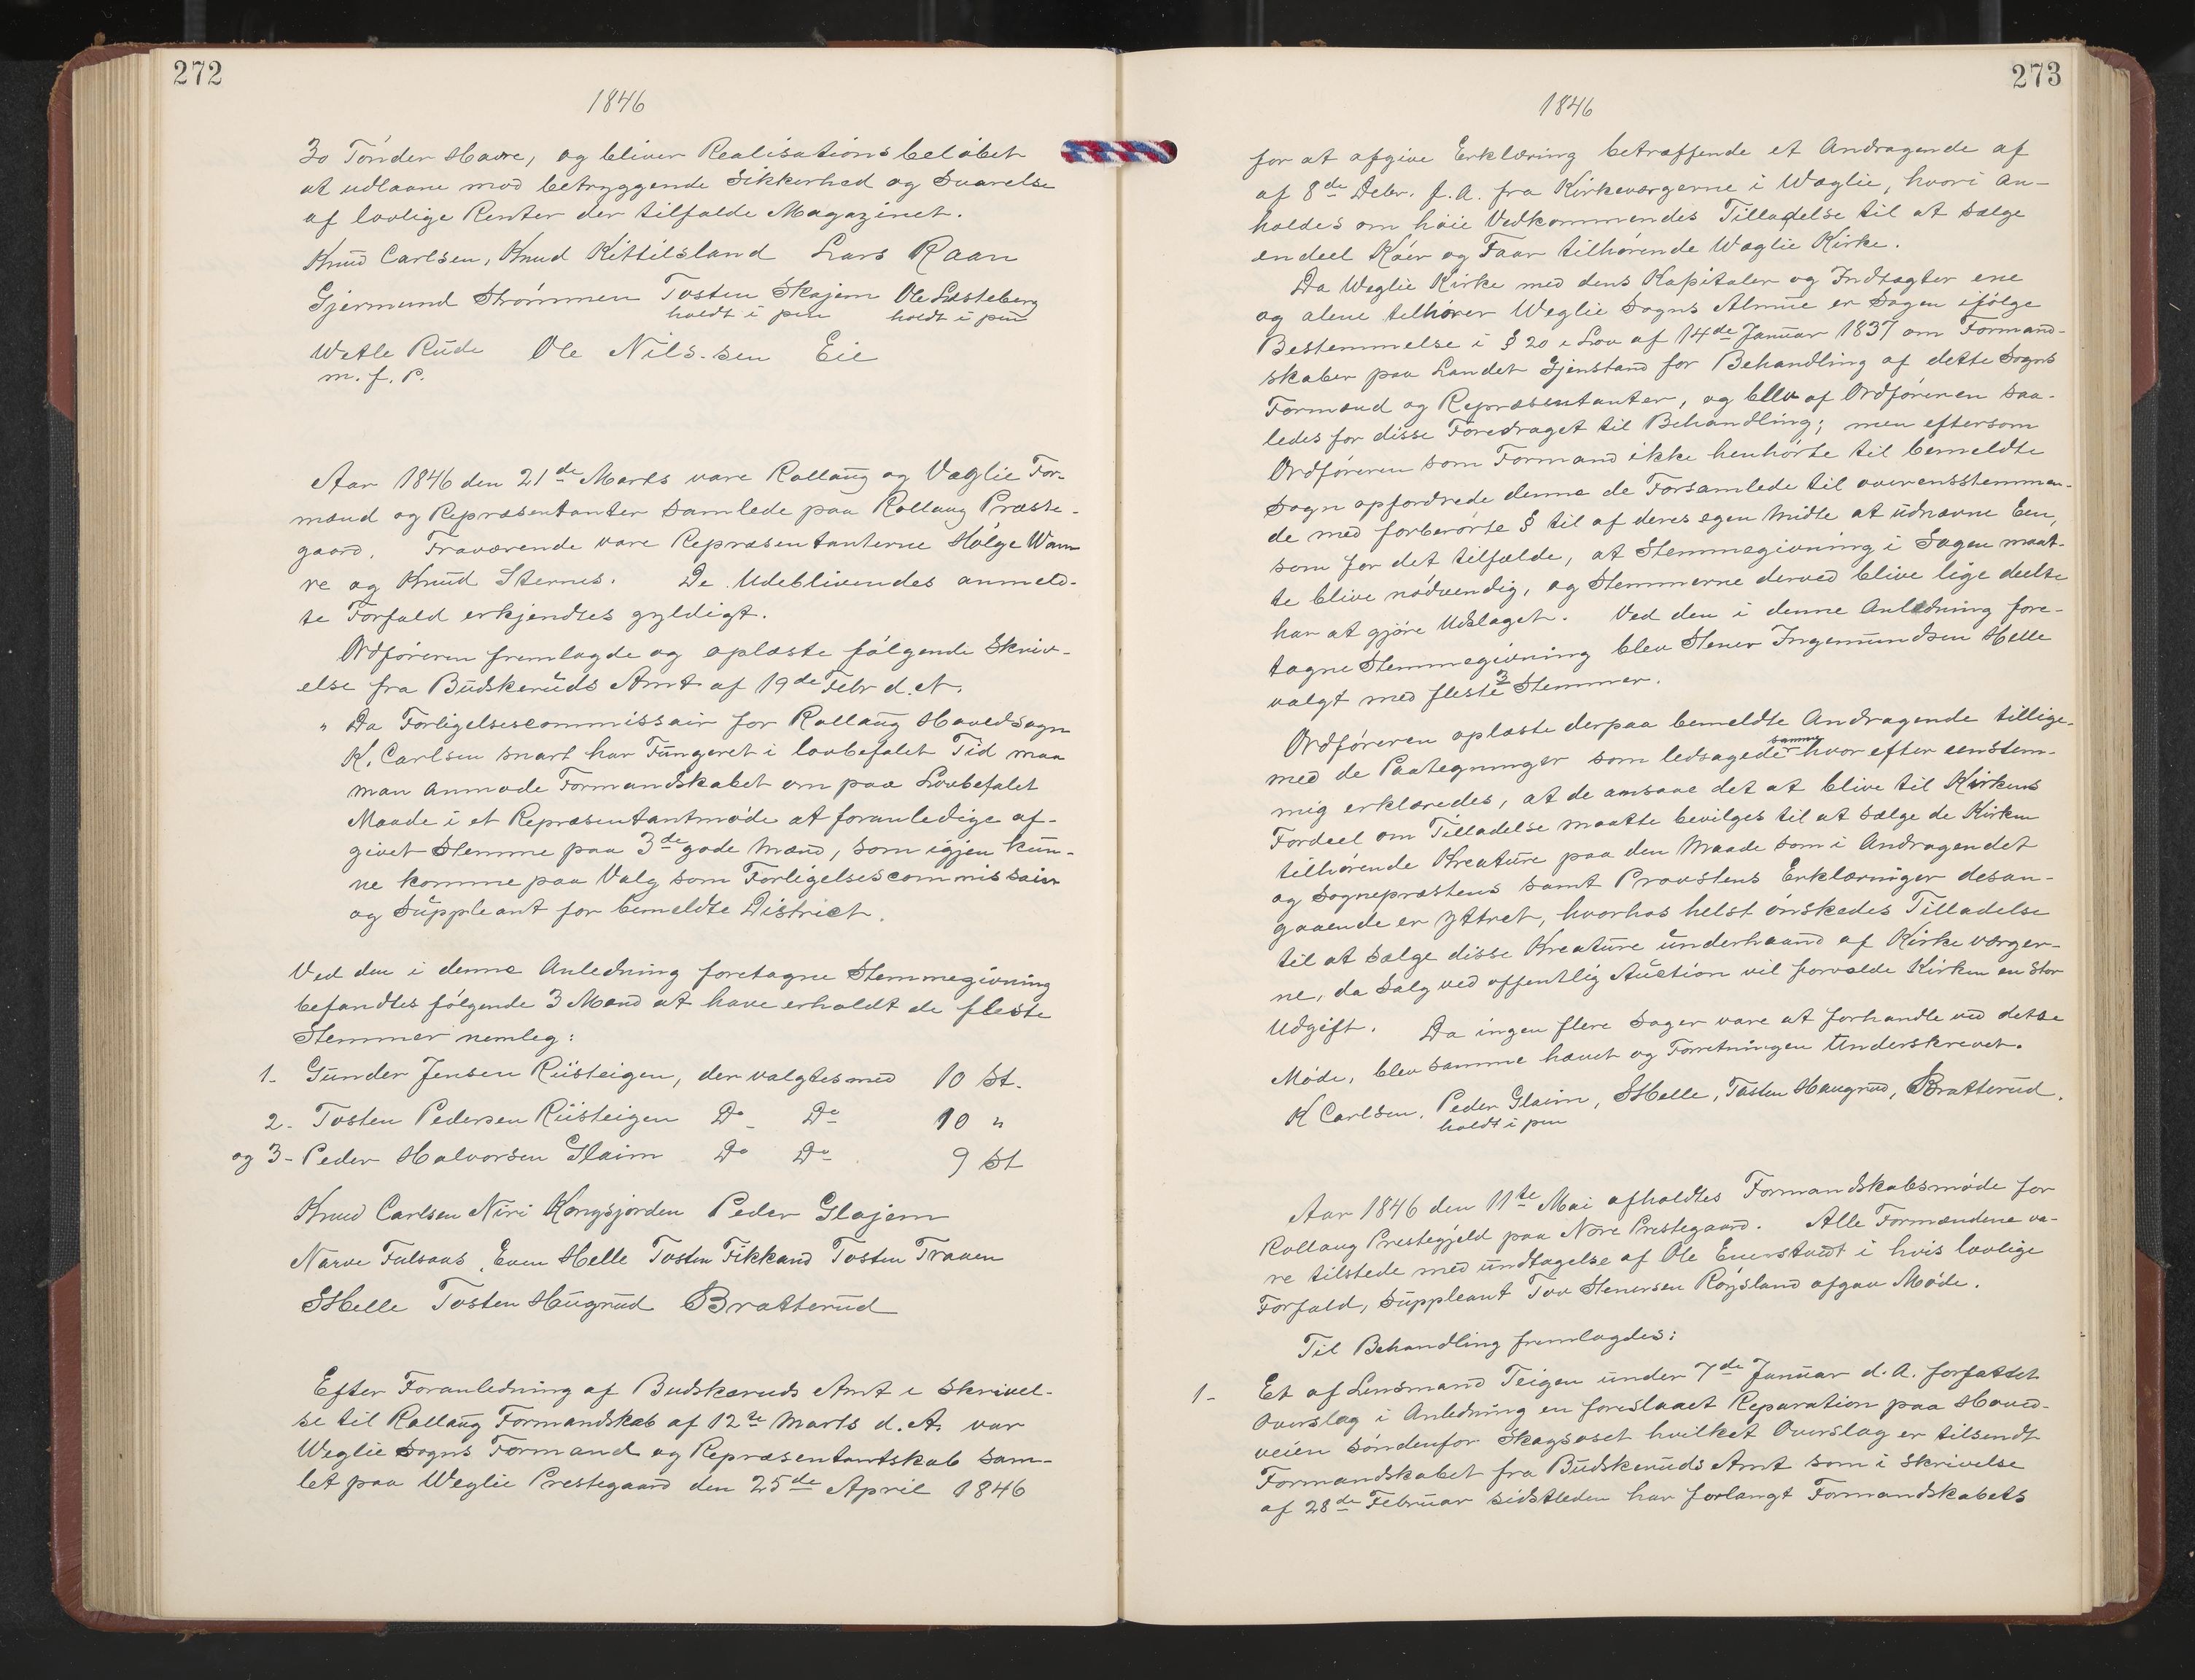 272
1846
30 Tönder Havre, og bliver Realisationsbelöbet
at udlaane mod betryggende Sikkerhed og Svarelse
af lovlige Renter der tilfalde Magazinet.
Knud Carlsen, Knud Kittilsland Lars Raan
Gjermund Strömmen Tosten Skajem Ole Listeberg
holdt i pen holdt i pen
Wetle Rude Ole Nils-sen Eie
m. f. P.
Aar 1846 den 21de Marts vare Rollaug og Væglie For-
mænd og Repræsentanter samlede paa Rollaug Præste-
gaard. Fraværende vare Repræsentanterne Hölge Wam
re og Knud Sternes. De Udeblivendes anmeld-
te Forfald erkjendtes gyldigt.
Ordföreren fremlagde og oplæste fölgende Skriv-
else fra Budskeruds Amt af 19de Febr d. A.
" Da Forligelsescommissair for Rollaug Hovedsogn
K. Carlsen snart har Fungeret i lovbefalet Tid maa
man anmode Formandskabet om paa Lovbefalet
Maade i et Repræsentantmöde at foranledige af-
givet Stemme paa 3de gode Mænd, som igjen kun-
ne komme paa Valg som Forligelsescommissair
og Suppleant for bemeldte District.
Ved den i denne Anledning foretagne Stemmegivning
befandtes fölgende 3 Mænd at have erholdt de fleste
Stemmer nemleg:
1- Gunder Jensen Riisteigen, der valgtes med 10 St.
2- Tosten Pedersen Riisteigen Do Do 10 "
og 3- Peder Halvorsen Glaim Do Do 9 St
Knud Carlsen Niri Kongsjorden Peder Glajem
Narve Fulsaas, Even Helle Tosten Fikkand Tosten Traaen
SHelle Tosten Hugrud Bratterud
Efter Foranledning af Budskeruds Amt i Skrivel-
se til Rollaug Formandskab af 12te Marts d. A. var
Weglie Sogns Formand og Repræsentantskab sam-
let paa Weglie Prestegaard den 25de April 1846
273
1846
for at afgive Erklæring betræffende et Andragende af
af 8de Debr. f. A. fra Kirkeværgerne i Wæglie, hvori an-
holdes om höie Vedkommendes Tilladelse til at sælge
en deel Köer og Faar tilhörende Wæglie Kirke.
Da Weglie Kirke med dens Kapitaler og Indtægter ene
og alene tilhörer Weglie Sogns Almue er Sagen ifölge
Bestemmelse i § 20 i Lov af 14de Januar 1837 om Formand-
skaber paa Landet Gjenstand for Behandling af dette Sogns
Formænd og Repræsentanter, og blev af Ordföreren saa-
ledes for disse Foredraget til Behandling; men eftersom
Ordföreren som Formand ikke henhörte til bemeldte
Sogn opfordrede denne de Forsamlede til overensstemmen-
de med forberörte § til af deres egen Midte at udnævne Een,
som for det tilfælde, at Stemmegivning i Sagen maat-
te blive nödvendig, og Stemmerne derved blive lige deelte
har at gjöre Udslaget. Ved den i denne Anledning fore-
tagne Stemmegivning blev Stener Ingemundsen Helle
valgt med fleste 3 Stemmer.
Ordföreren oplæste derpaa bemeldte Andragende tillige-
med de Paategninger som ledsagede samme hvor efter eenstem-
mig erklæredes, at de ansaae det at blive til Kirkens
Fordeel om Tilladelse maatte bevilges til at sælge de Kirken
tilhörende Kreature paa den Maade som i Andragendet
og Sognepræstens samt Provstens Erklæringer desan-
gaaende er yttret, hvorhos helst önskedes Tilladelse
til at sælge disse Kreature underhaand af Kirkeværger-
ne, da Salg ved offentlig Auction vil forvolde Kirken en stor
Udgift. Da ingen flere Sager vare at forhandle ved dette
Möde, blev samme hævet og Forretningen Underskrevet.
K Carlsen. Peder Glaim, SHelle, Tosten Haugrud, Bratterud.
holdt i pen
Aar 1846 den 11te Mai afholdtes Formandskabsmöde for
Rollaug Prestegjeld paa Nore Prestegaard. Alle Formændene va-
re tilstede med undtagelse af Ole Enerstvedt i hvis lovlige
Forfald, Suppleant Tov Stenersen Röysland afgav Möde.
Til Behandling fremlagdes:
1- Et af Lensmand Teigen under 7de Januar d. A. forfattet
Overslag i Anledning en foreslaaet Reparation paa Hoved-
veien söndenfor Skagsoset hvilket Overslag er tilsendt
Formandskabet fra Budskeruds Amt som i Skrivelse
af 28de Februar sidstleden har forlangt Formandskabets